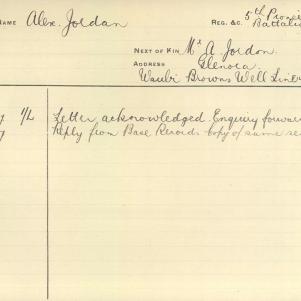 NAME Alex. Jordan REG. &C. 5th Pioneer
Battalion
NEXT OF KIN Mr A. Jordon.
ADDRESS Glenora
Browns Well Line
1/2 Letter acknowledged Enquiry forwar
Reply from Base Records copy of same se